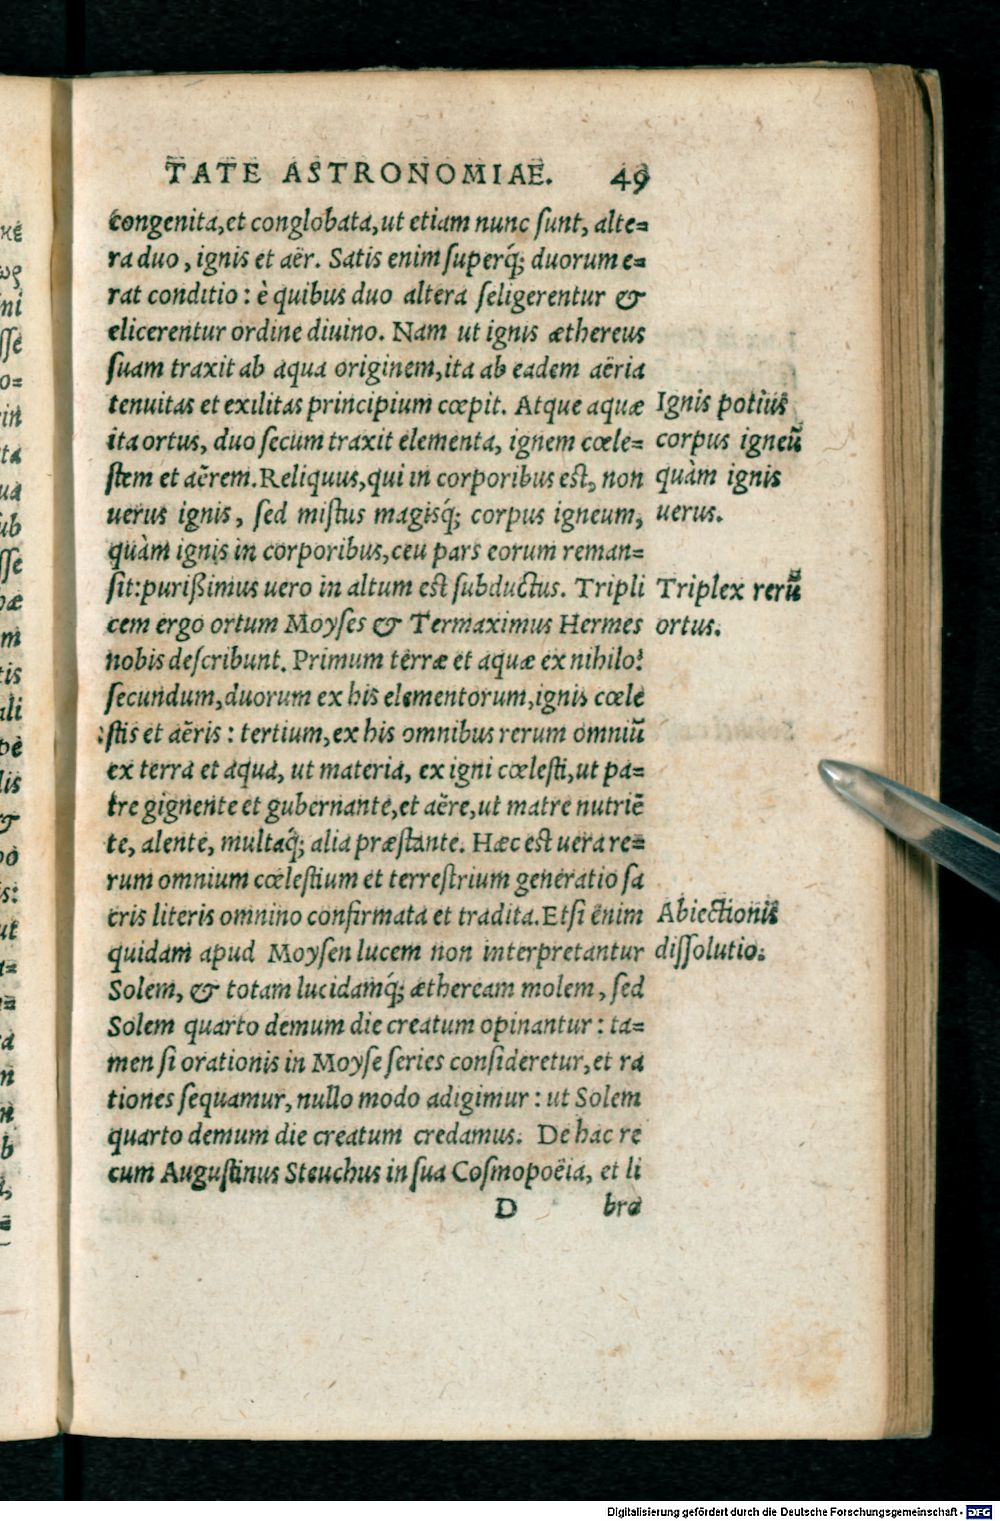 TATE ASTRONOMIAE. 49
congenita,et conglobata,ut etiam nunc ſunt, alte=
ra duo, ignis et aër. Satis enim ſuperq́; duorum e=
rat conditio: è quibus duo altera ſeligerentur &
elicerentur ordine diuino. Nam ut ignis æthereus
ſuam traxit ab aqua originem,ita ab eadem aëria
tenuitas et exilitas principium cœpit. Atque aquæ
ita ortus, duo ſecum traxit elementa, ignem cœle=
ſtem et aërem. Reliquus,qui in corporibus est, non
uerus ignis, ſed miſtus magisq́; corpus igneum,
quàm ignis in corporibus,ceu pars eorum reman=
ſit:purißimus uero in altum est ſubductus. Tripli
cem ergo ortum Moyſes & Termaximus Hermes
nobis deſcribunt. Primum terræ et aquæ ex nihilo:
ſecundum,duorum ex his elementorum,ignis cœle
ſtis et aëris: tertium,ex his omnibus rerum omniū
ex terra et aqua, ut materia, ex igni cœleſti,ut pa=
tre gignente et gubernante,et aëre,ut matre nutriē
te, alente, multaq́; alia præſtante. Hæc est uera re=
rum omnium cœleſtium et terreſtrium generatio ſa
cris literis omnino confirmata et tradita. Etſi enim
quidam apud Moyſen lucem non interpretantur
Solem, & totam lucidamq́; ætheream molem, ſed
Solem quarto demum die creatum opinantur: ta=
men ſi orationis in Moyſe ſeries conſideretur,et ra
tiones ſequamur, nullo modo adigimur: ut Solem
quarto demum die creatum credamus. De hac re
cum Auguſtinus Steuchus in ſua Coſmopoëia, et li
D bra
Ignis potiùs
corpus igneū
quàm ignis
uerus.
Triplex rerū
ortus.
Abiectionis
diſſolutio.
Digitalisierung gefördert durch die Deutsche Forschungsgemeinschaft - DFG